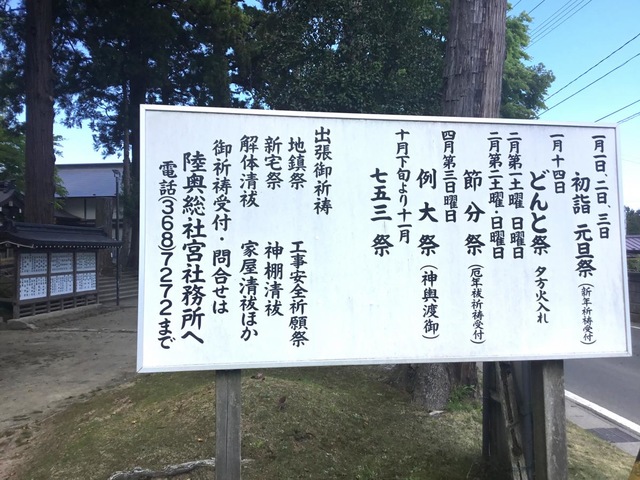 一月一日、二日、三日
初詣 元旦祭(新年祈祷受付)
一月十四日
どんと祭 夕方火入れ
二月第一土曜 日曜日
二月第二土曜・日曜日
節分祭(厄年祓祈祷受付)
四月第三日曜日
例大祭(神輿渡御)
十月下旬より十一月
七五三祭
出張御祈祷
地鎮祭 工事安全祈願祭
新宅祭 神棚清祓
解体清祓 家屋清祓ほか
御祈祷受付・問合せは
陸奥総社宮社務所へ
電話(368)7272まで